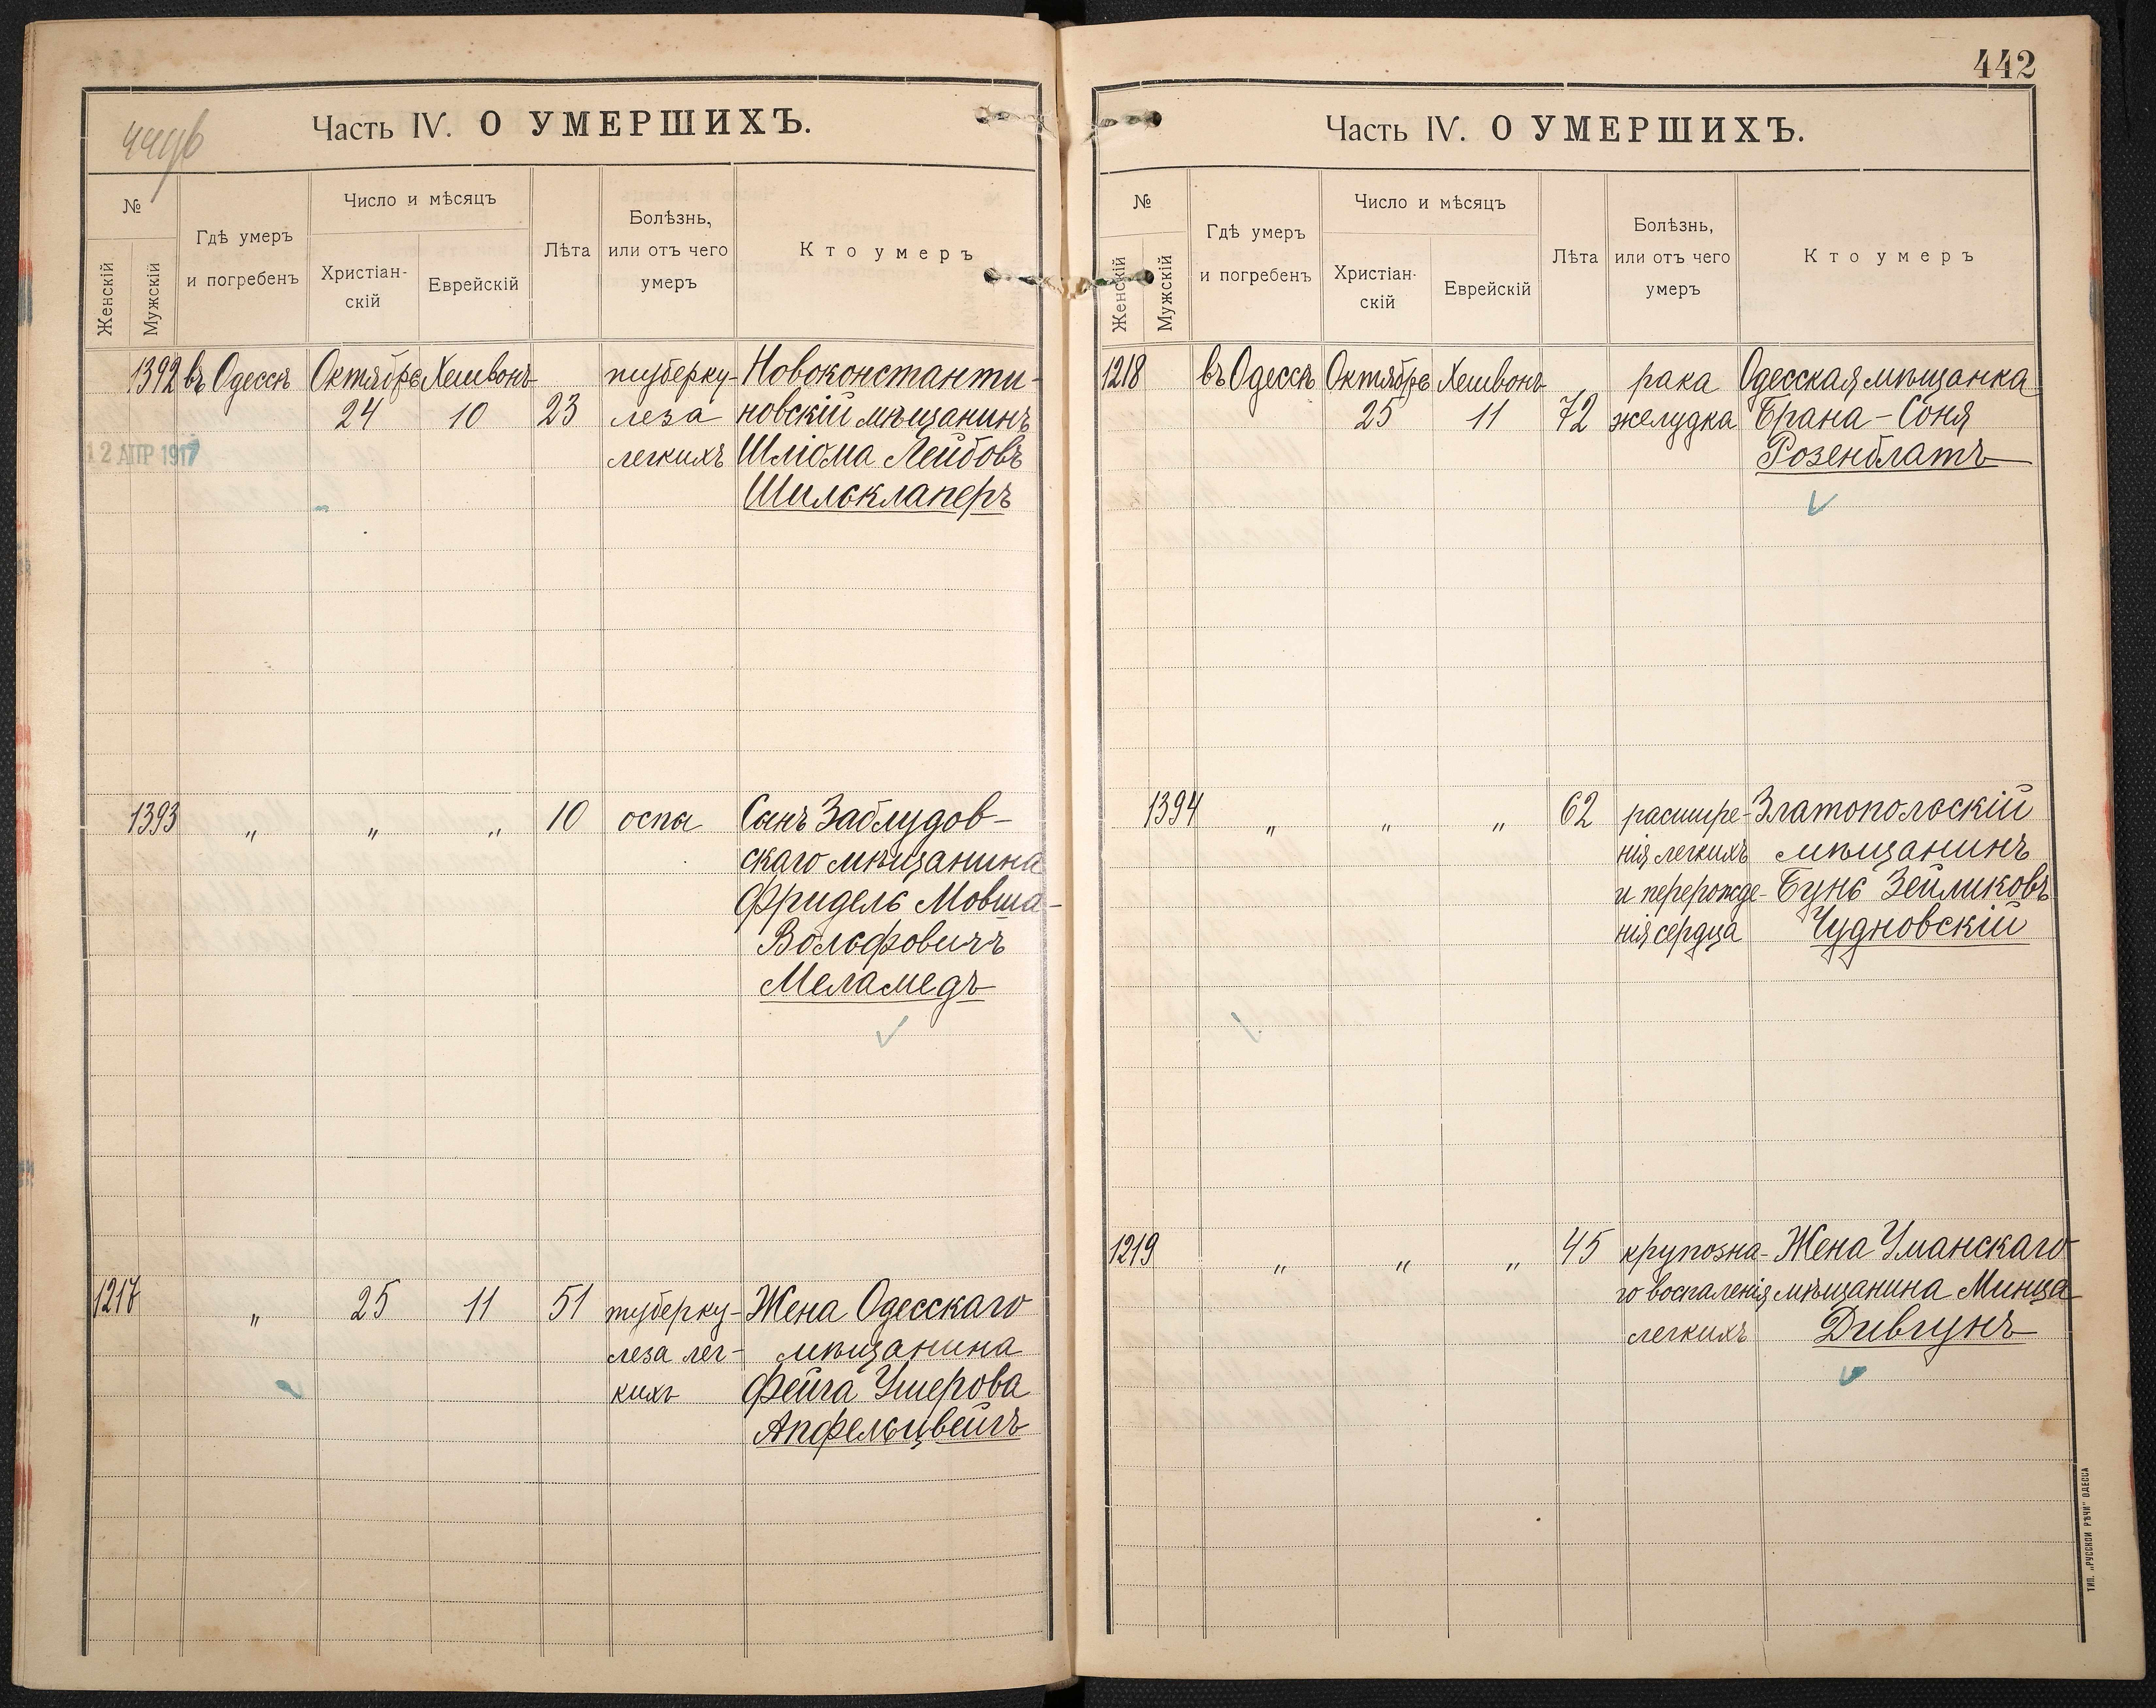 Часть IV. О УМЕРШИХЪ.
№
Женскій
Мужскій
Гдѣ умеръ
и погребенъ
Число и мѣсяцъ
Христіан-
скій
Еврейскій
Лѣта
Болѣзнь,
или отъ чего
умеръ
Кто умеръ
1392 въ Одессѣ Октябрь Хешвонъ туберку- Новоконстанти-
24 10 23 леза новскій мѣщанинъ
12 АПР 1917 легкихъ Шліома Лейбовъ
Шильклаперъ
1393 „ „ „ 10 оспа Сынъ Заблудов-
скаго мѣщанина
Фридель Мовша-
Вольфовичъ
Меламедъ
1217 „ 25 11 51 туберку- Жена Одесскаго
леза лег- мѣщанина
кихъ Фейга Ушерова
Апфельцвейгъ
442
Часть IV. О УМЕРШИХЪ.
№
Женскій
Мужскій
Гдѣ умеръ
и погребенъ
Число и мѣсяцъ
Христіан-
скій
Еврейскій
Лѣта
Болѣзнь,
или отъ чего
умеръ
Кто умеръ
1218 въ Одессѣ Октябрь Хешвонъ рака Одесская мѣщанка
25 11 72 желудка Брана-Соня
Розенблатъ
1394 „ „ „ 62 расшире- Златопольскій
нія легкихъ мѣщанинъ
и перерожде- Бунь Зейликовъ
нія сердца Чудновскій
1219 „ „ „ 45 крупозна- Жена Уманскаго
го воспаленія мѣщанина Минца
легкихъ Дивгунъ
ТИП. „РУССКОЙ РѢЧИ" ОДЕССА